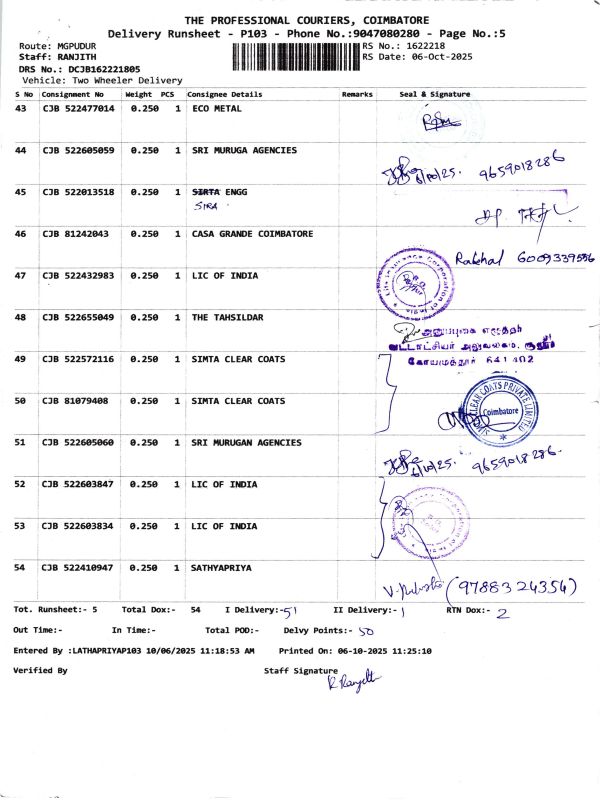 THE PROFESSIONAL COURIERS, COIMBATORE
Delivery Runsheet - P103 - Phone No.:9047080280 - Page No.:5
Route: MGPUDUR
RS No.: 1622218
Staff: RANJITH
RS Date: 06-Oct-2025
DRS No.: DCJB162221805
Vehicle: Two Wheeler Delivery
S No Consignment No Weight PCS Consignee Details Remarks Seal & Signature
43 CJB 522477014 0.250 1 ECO METAL
44 CJB 522605059 0.250 1 SRI MURUGA AGENCIES
6/10/25. 9659018286
45 CJB 522013518 0.250 1 SIRTA ENGG
SIRA
46 CJB 81242043 0.250 1 CASA GRANDE COIMBATORE
Rakhal 6009339586
47 CJB 522432983 0.250 1 LIC OF INDIA
48 CJB 522655049 0.250 1 THE TAHSILDAR
அனுப்புகை எழுத்தர்
வட்டாட்சியர் அலுவலகம்,
கோயமுத்தூர் 641 402
49 CJB 522572116 0.250 1 SIMTA CLEAR COATS
50 CJB 81079408 0.250 1 SIMTA CLEAR COATS
CLEAR COATS PRIVATE LIMITED
Coimbatore
51 CJB 522605060 0.250 1 SRI MURUGAN AGENCIES
6/10/25. 9659018286.
52 CJB 522603847 0.250 1 LIC OF INDIA
53 CJB 522603834 0.250 1 LIC OF INDIA
54 CJB 522410947 0.250 1 SATHYAPRIYA
(9788324354)
Tot. Runsheet:- 5 Total Dox:- 54 I Delivery:- 51 II Delivery:- 1 RTN Dox:- 2
Out Time:- In Time:- Total POD:- Delvy Points:- 50
Entered By :LATHAPRIYAP103 10/06/2025 11:18:53 AM Printed On: 06-10-2025 11:25:10
Verified By Staff Signature
R Ranjith